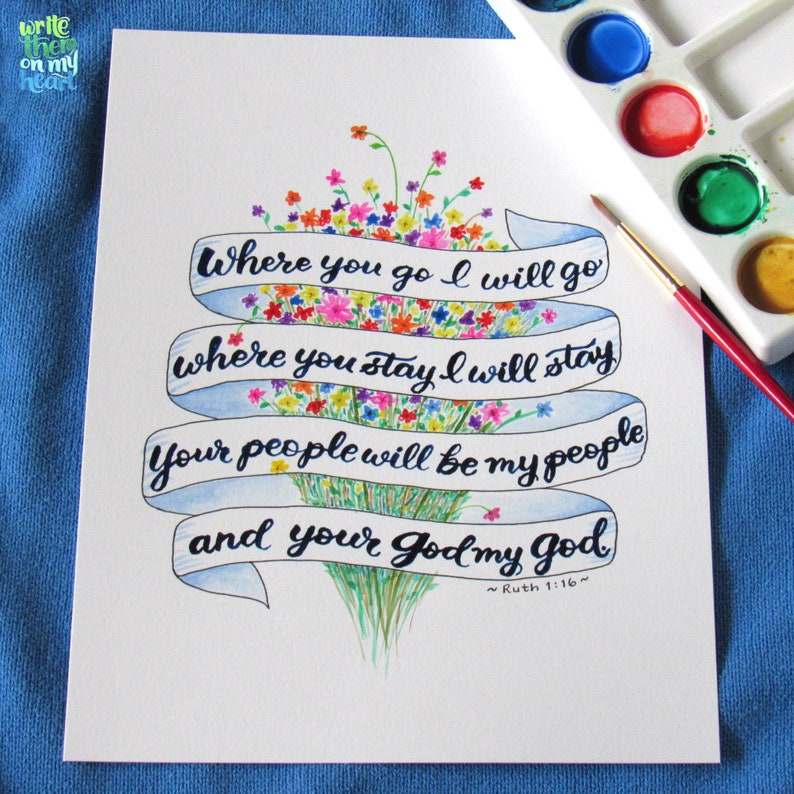 write
them
on my
heart
Where you go I will go
where you stay I will stay
Your people will be my people
and your God my God
~ Ruth 1:16 ~